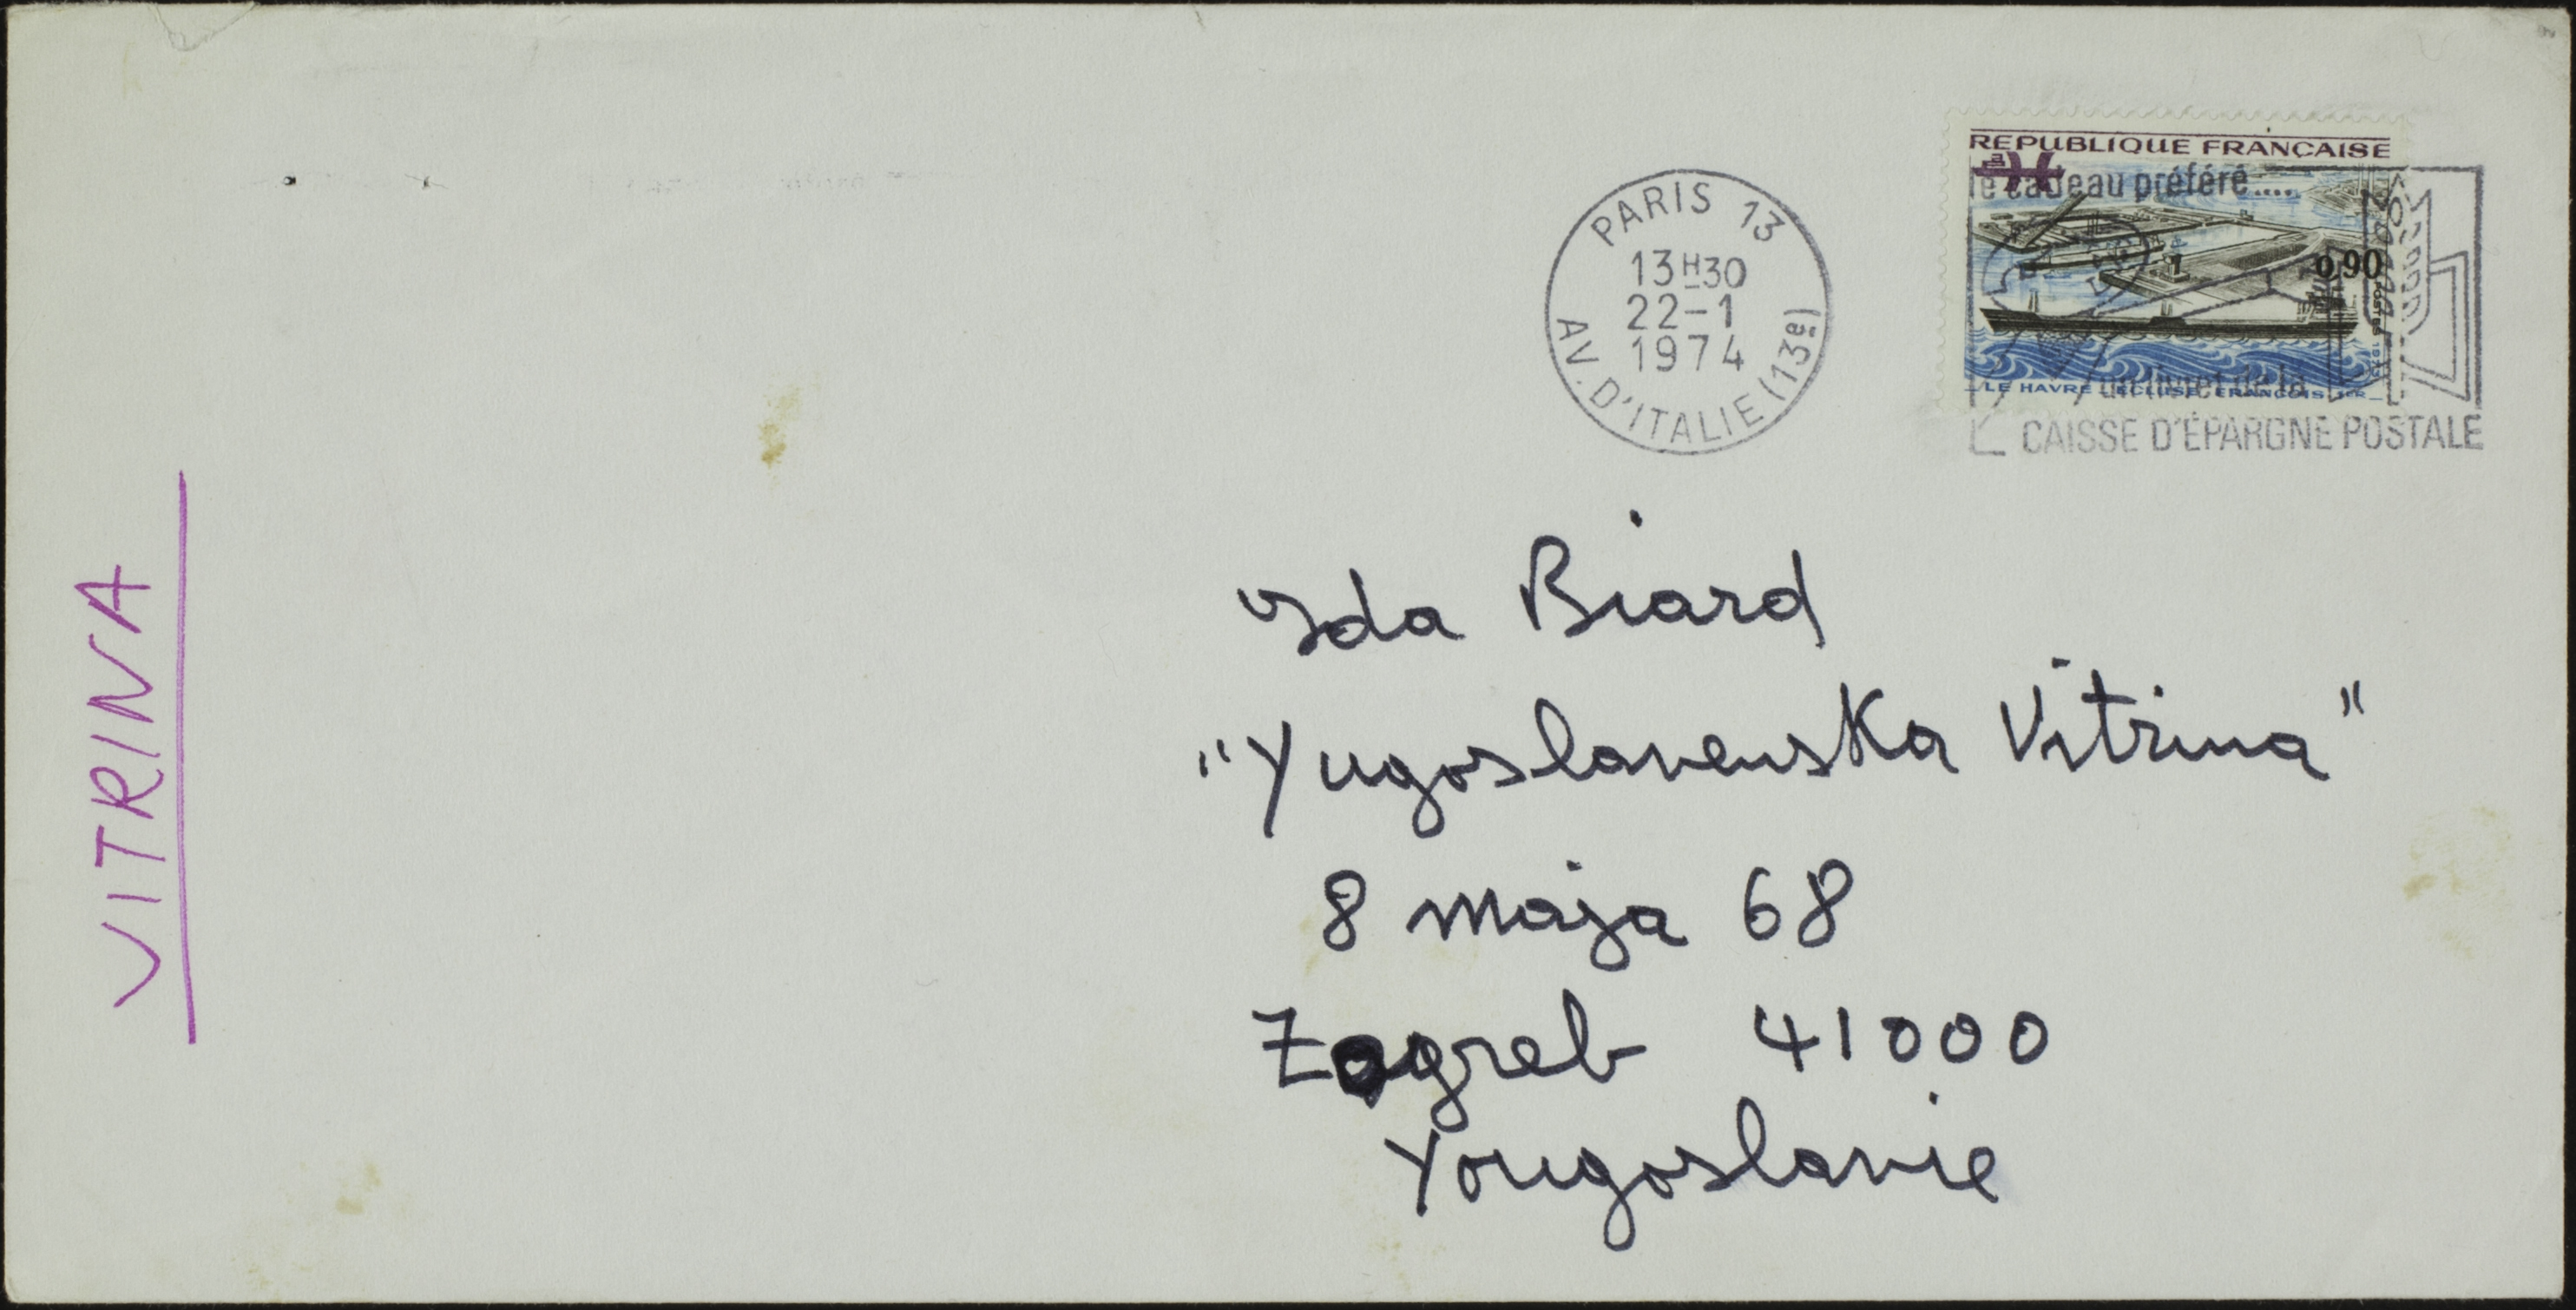 VITRINA
PARIS 13
13H30
22-1
1974
AV. D'ITALIE (13e)
REPUBLIQUE FRANÇAISE
le cadeau préféré....
0,90
POSTES
LE HAVRE ECLUSE FRANCOIS 1ER
un livret de la
CAISSE D'ÉPARGNE POSTALE
Ida Biard
"Yugoslavenska Vitrina"
8 maja 68
Zagreb 41000
Yougoslavie